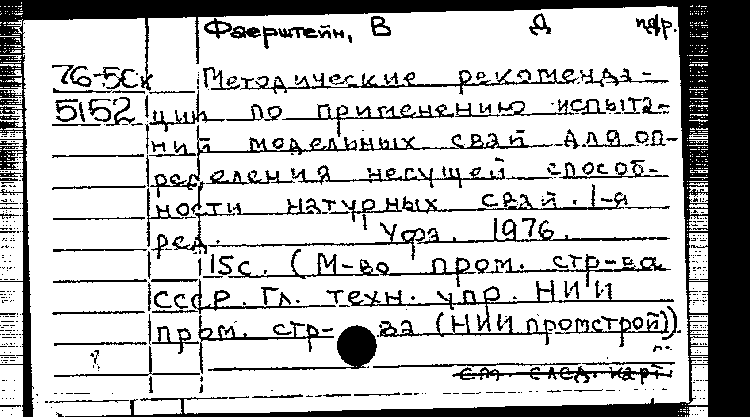 Фаерштейн, В Д пдр.
76-5Ск Методические рекоменда-
5152 ции по применению испыта-
ний модельных свай для оп-
ределения несущей способ-
ности натурных свай. 1-я
ред. Уфа. 1976.
15с. (М-во пром. стр-ва
СССР. Гл. техн. упр. НИИ
пром. стр-ва (НИИпромстрой))
см. след. карт.